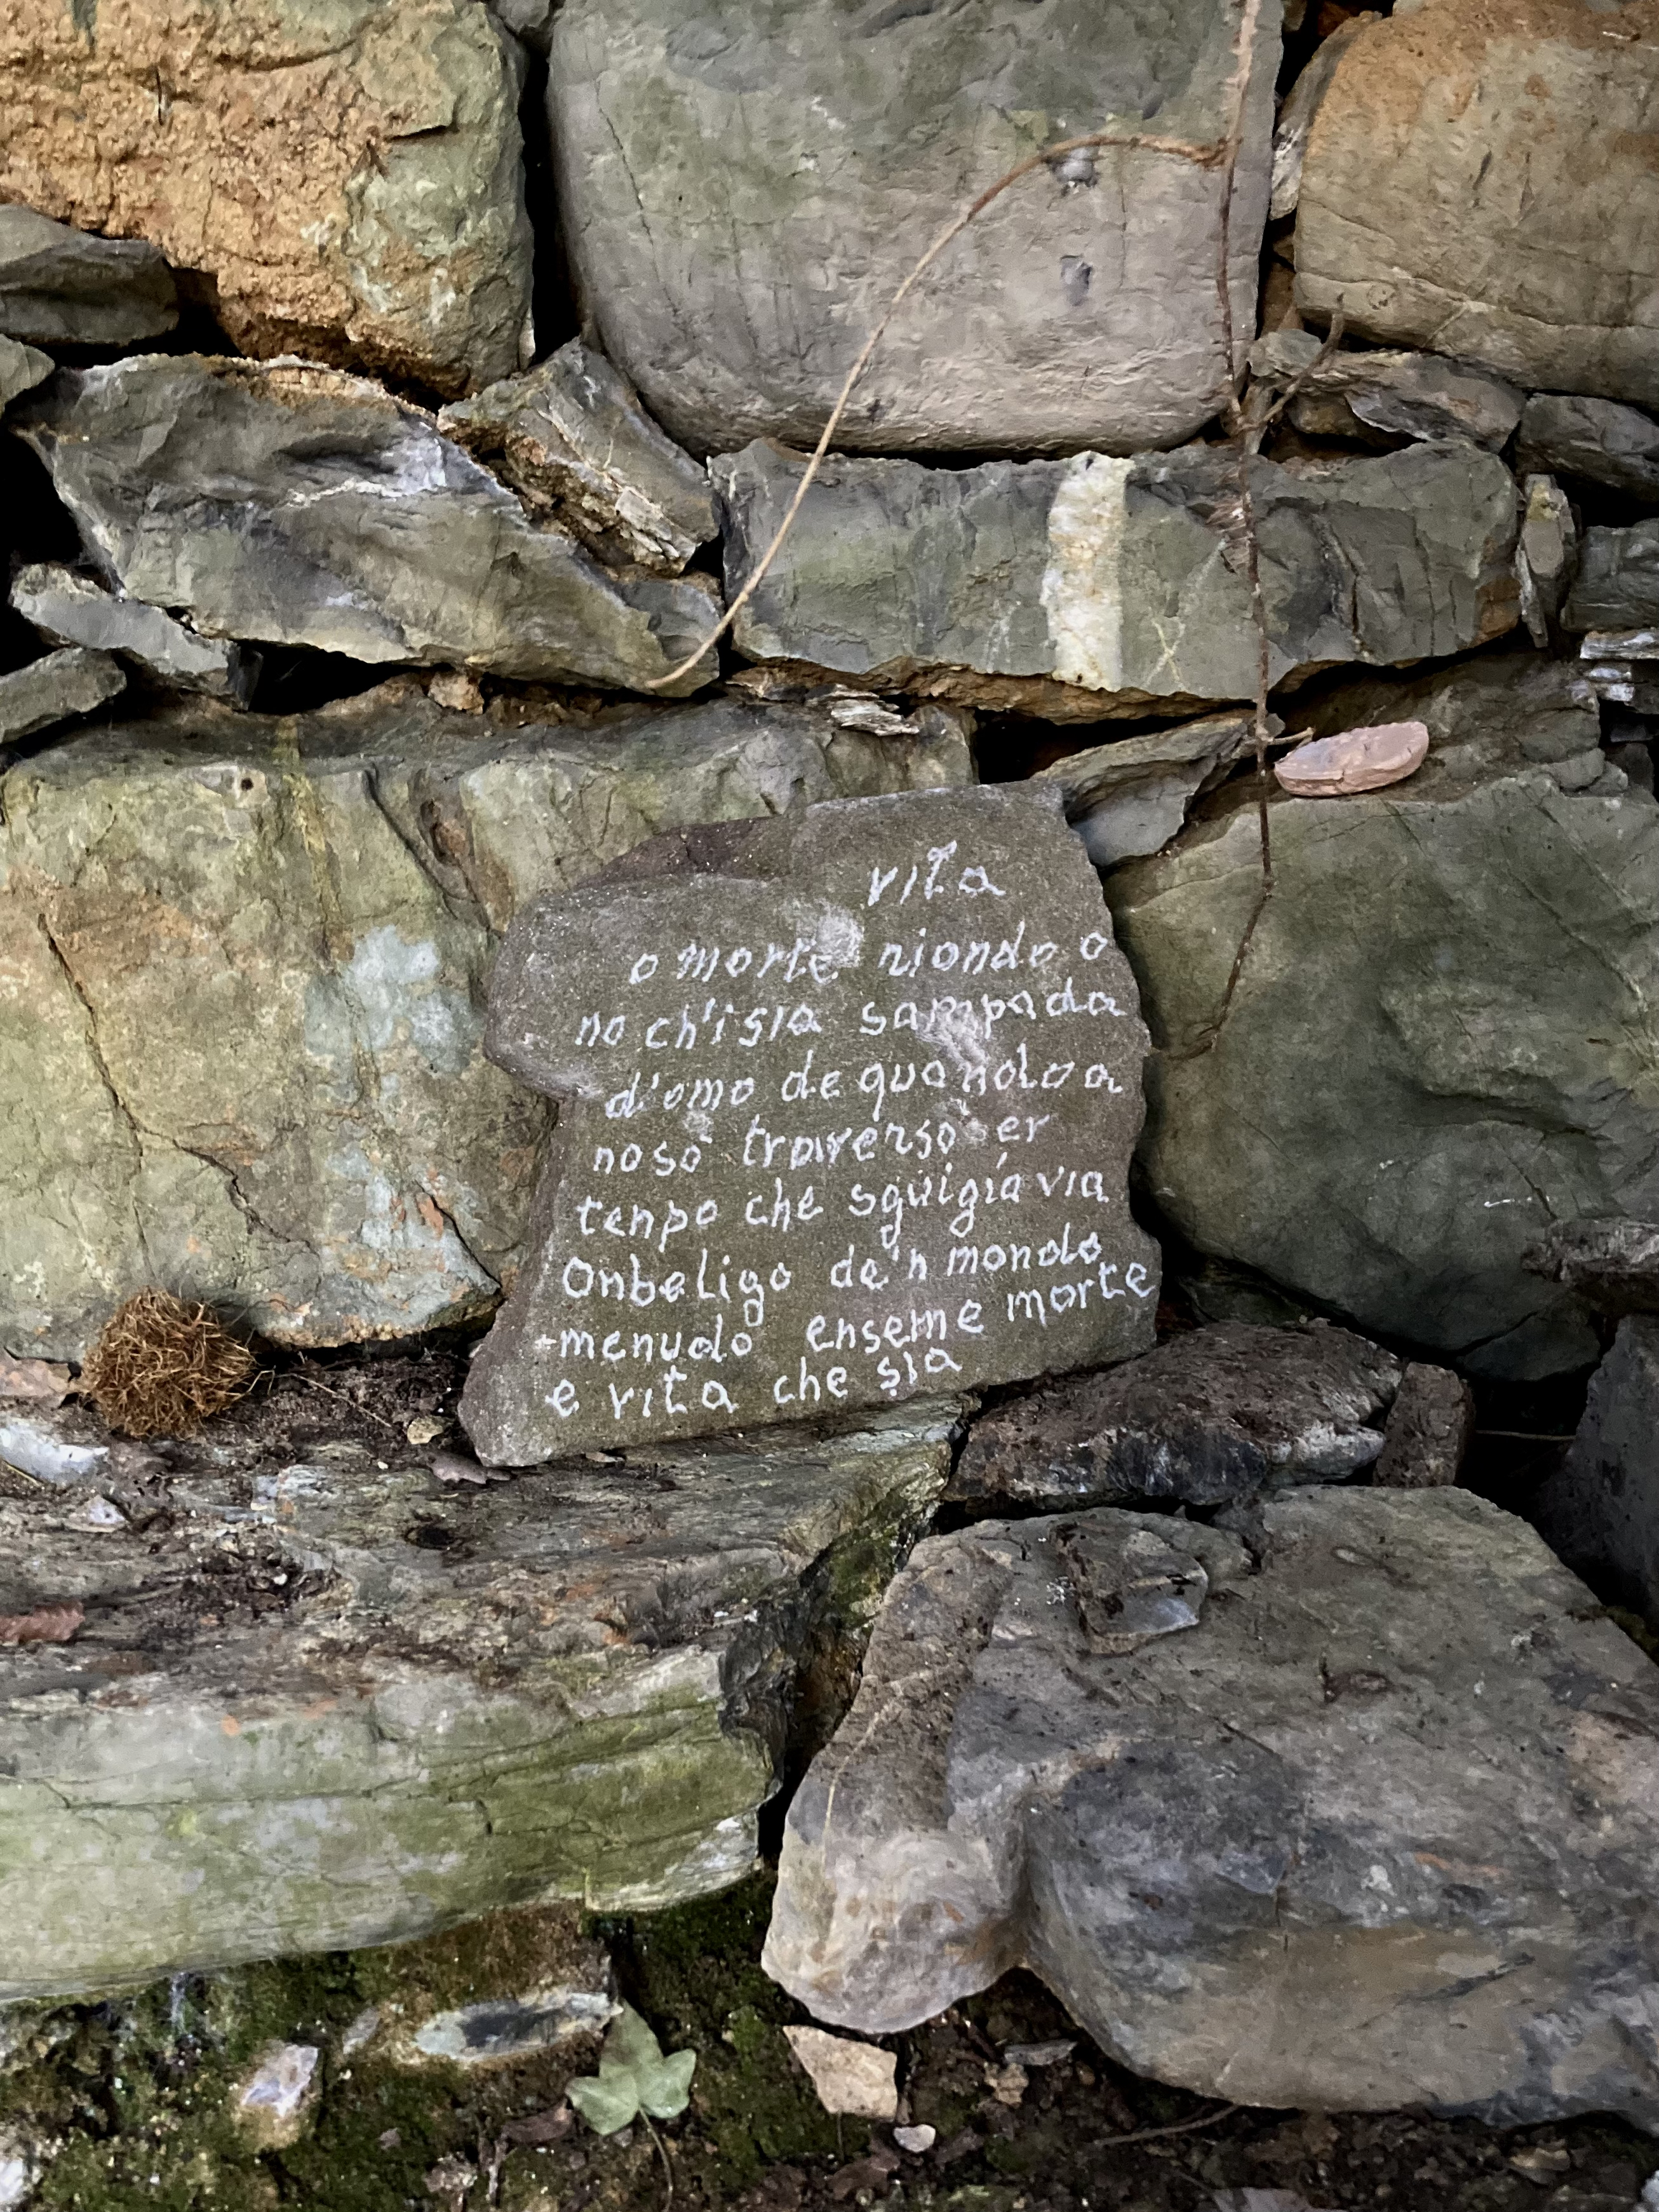 vita
o morte riondo o
no ch'i sia sampada
d'omo de quando a
no so traverso er
tenpo che sguigia via
Onbeligo de'n mondo
menudo enseme morte
e vita che sia